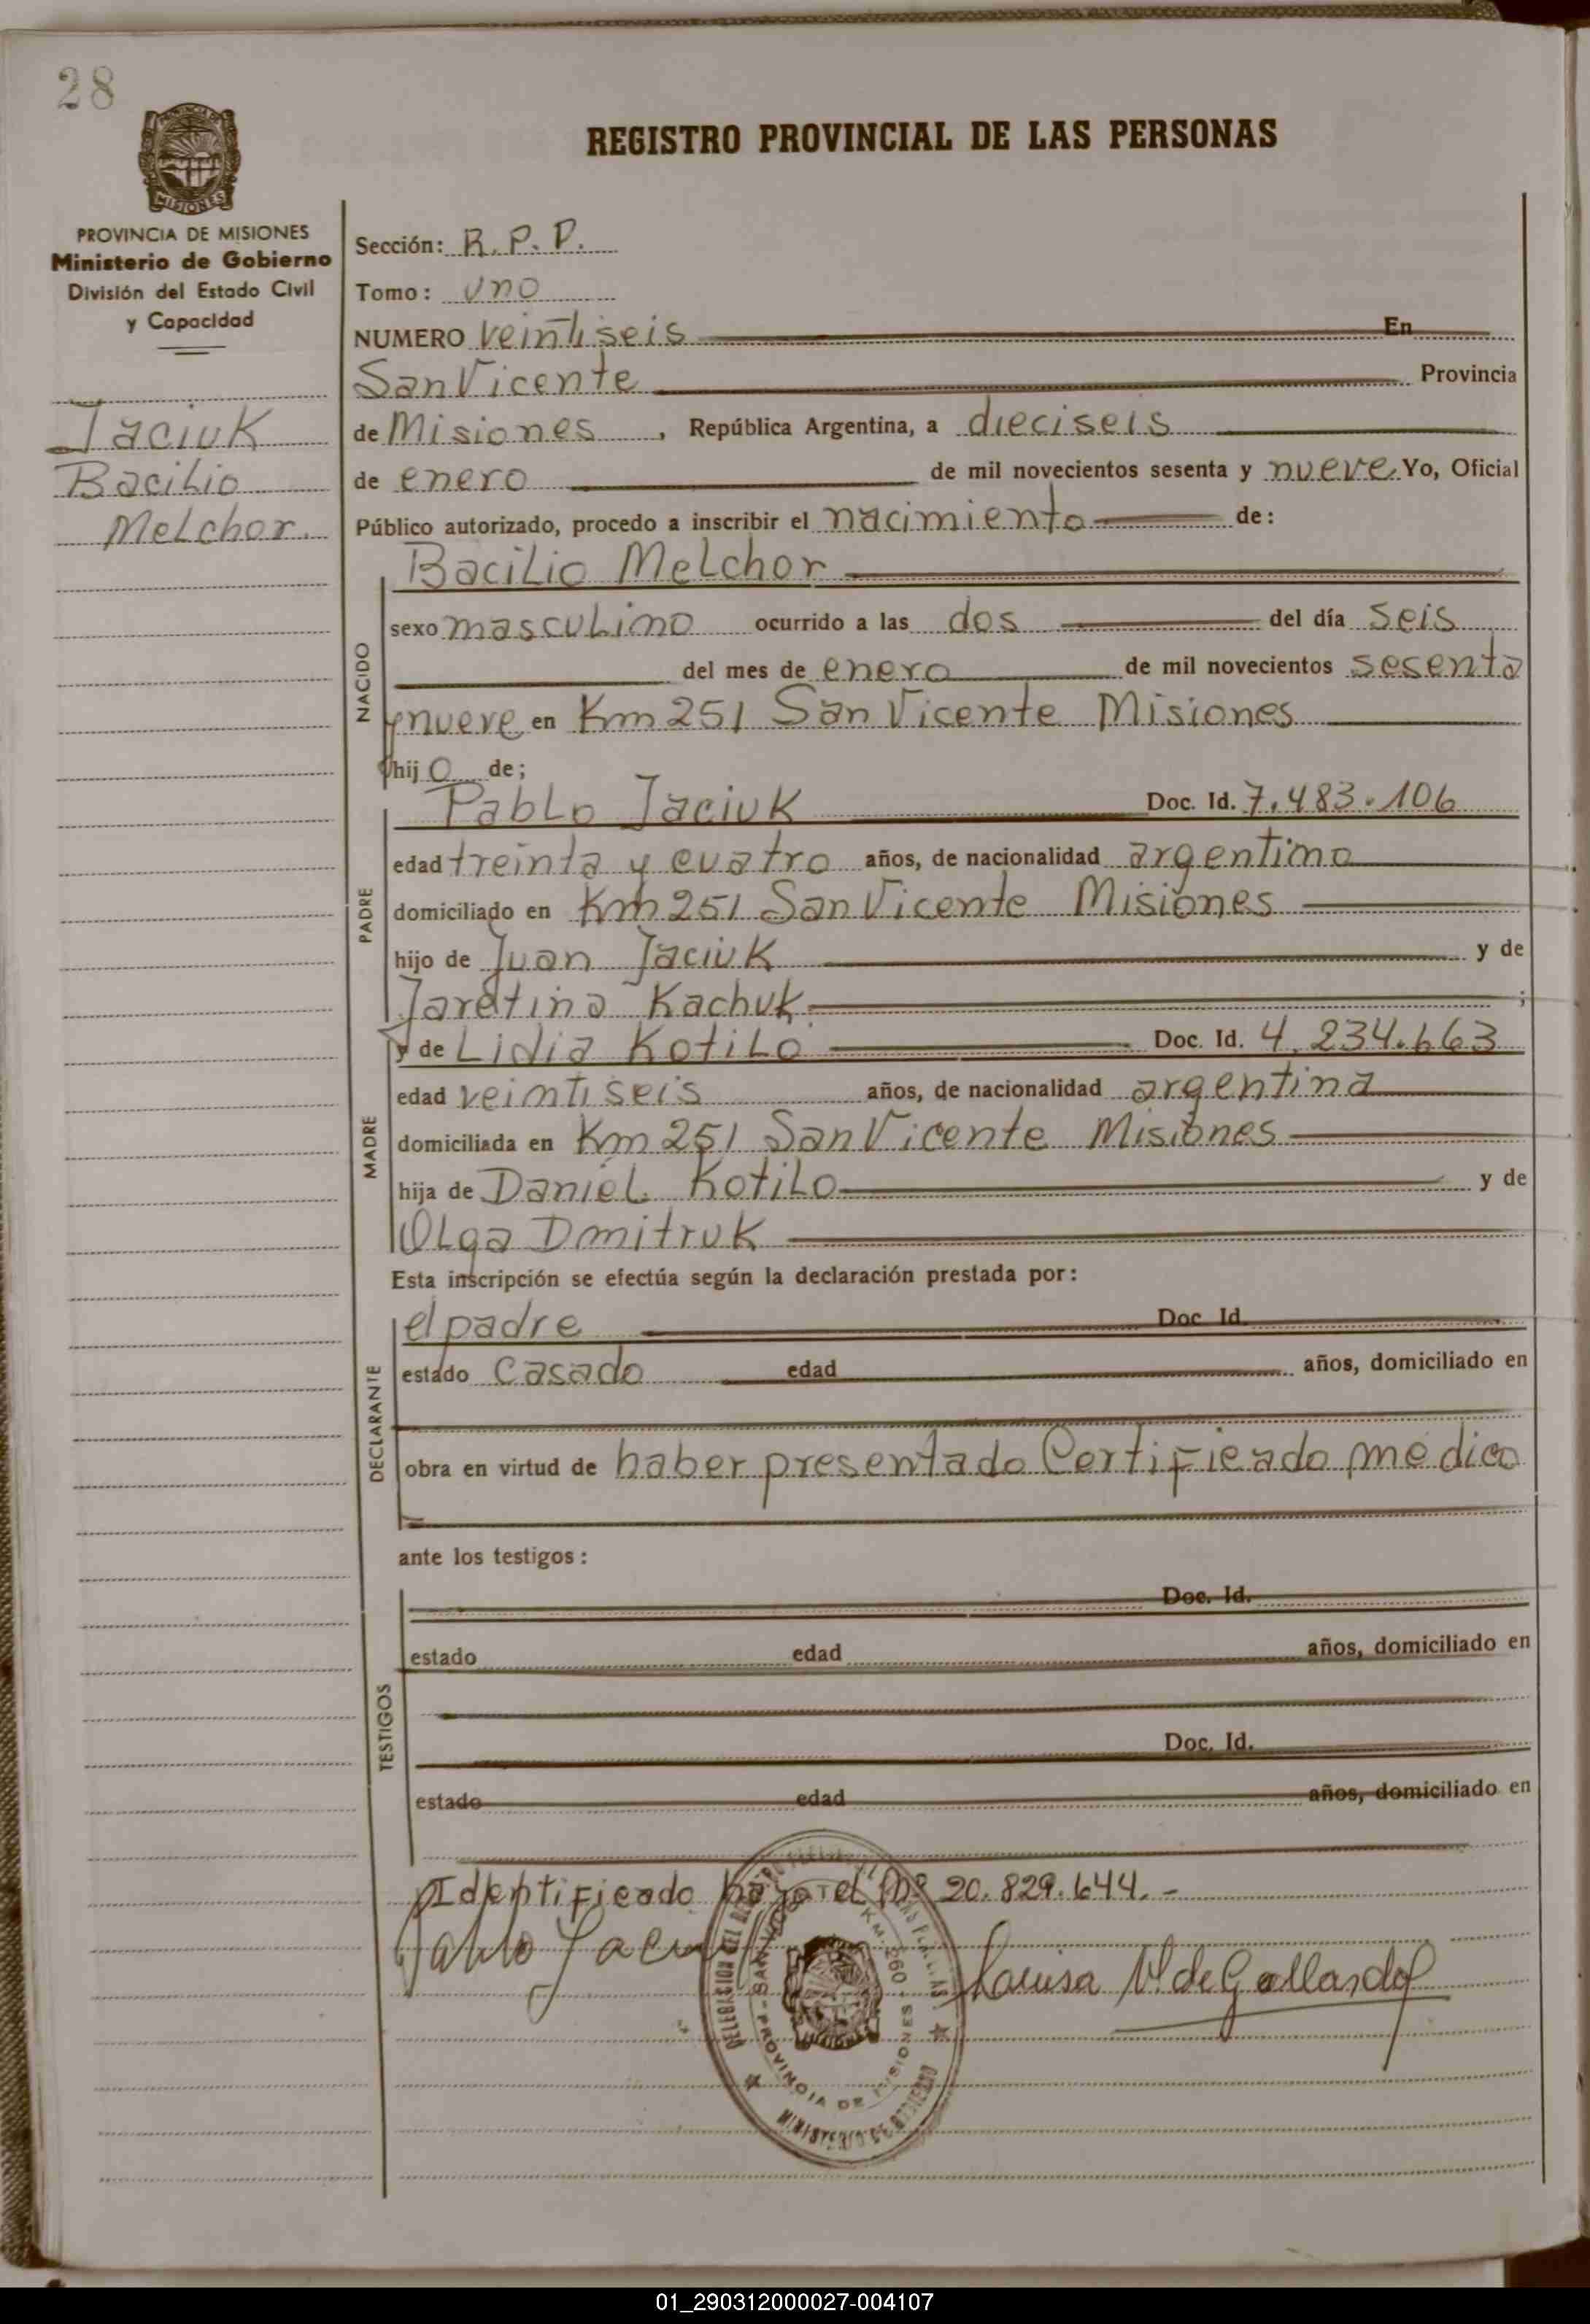 28
REGISTRO PROVINCIAL DE LAS PERSONAS
PROVINCIA DE MISIONES
Ministerio de Gobierno
División del Estado Civil
y Capacidad
Jaciuk
Bacilio
Melchor.
Sección: R. P. P.
Tomo: uno
NUMERO veintiseis En
San Vicente Provincia
de Misiones, República Argentina, a dieciseis
de enero de mil novecientos sesenta y nueve Yo, Oficial
Público autorizado, procedo a inscribir el nacimiento de:
NACIDO
Bacilio Melchor
sexo masculino ocurrido a las dos del día seis
del mes de enero de mil novecientos sesenta
y nueve en Km 251 San Vicente Misiones
hijo de;
PADRE
Pablo Jaciuk Doc. Id. 7.483.106
edad treinta y cuatro años, de nacionalidad argentino
domiciliado en Km 251 San Vicente Misiones
hijo de Juan Jaciuk y de
Jaretina Kachuk ;
MADRE
y de Lidia Kotilo Doc. Id. 4.234.663
edad veintiseis años, de nacionalidad argentina
domiciliada en Km 251 San Vicente Misiones
hija de Daniel Kotilo y de
Olga Dmitruk
Esta inscripción se efectúa según la declaración prestada por:
DECLARANTE
el padre Doc. Id.
estado casado edad años, domiciliado en
obra en virtud de haber presentado Certificado medico
ante los testigos:
TESTIGOS
Doc. Id.
estado edad años, domiciliado en
Doc. Id.
estado edad años, domiciliado en
Identificado bajo el Nº 20.829.644.-
Pablo Jaciuk
Lauisa V. de Gallardo
PROVINCIA DE MISIONES
KM. 260
01_290312000027-004107